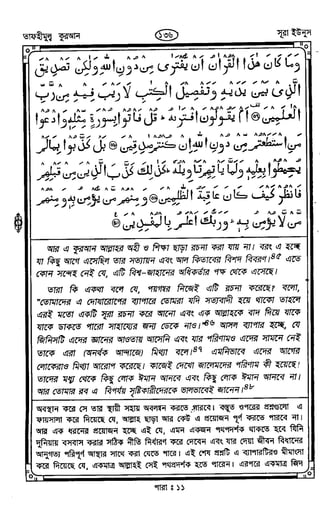 তাফহীমুল কুরআন
১৩৬
সূরা ইউনুস
وَمَا كَانَ هٰذَا الْقُرْاٰنُ اَنْ يُّفْتَرٰى مِنْ دُوْنِ اللّٰهِ وَلٰكِنْ تَصْدِيْقَ
الَّذِيْ بَيْنَ يَدَيْهِ وَتَفْصِيْلَ الْكِتٰبِ لَا رَيْبَ فِيْهِ مِنْ رَّبِّ
الْعٰلَمِيْنَ ﴿٣٧﴾ اَمْ يَقُوْلُوْنَ افْتَرٰىهُ ؕ قُلْ فَاْتُوْا بِسُوْرَةٍ مِّثْلِهٖ وَادْعُوْا
مَنِ اسْتَطَعْتُمْ مِّنْ دُوْنِ اللّٰهِ اِنْ كُنْتُمْ صٰدِقِيْنَ ﴿٣٨﴾ بَلْ كَذَّبُوْا بِمَا لَمْ
يُحِيْطُوْا بِعِلْمِهٖ وَلَمَّا يَاْتِهِمْ تَاْوِيْلُهٗ ؕ كَذٰلِكَ كَذَّبَ الَّذِيْنَ مِنْ قَبْلِهِمْ
فَانْظُرْ كَيْفَ كَانَ عَاقِبَةُ الظّٰلِمِيْنَ ﴿٣٩﴾ وَمِنْهُمْ مَّنْ يُّؤْمِنُ بِهٖ وَمِنْهُمْ
مَّنْ لَّا يُؤْمِنُ بِهٖ ؕ وَرَبُّكَ اَعْلَمُ بِالْمُفْسِدِيْنَ ﴿٤٠﴾
আর এ কুরআন আল্লাহর অহী ও শিক্ষা ছাড়া রচনা করা যায় না। বরং এ হচ্ছে
যা কিছু আগে এসেছিল তার সত্যায়ন এবং আল কিতাবের বিশদ বিবরণ।৪৫ এতে
কোন সন্দেহ নেই যে, এটি বিশ্ব-জাহানের অধিকর্তার পক্ষ থেকে এসেছে।
তারা কি একথা বলে যে, পয়গম্বর নিজেই এটি রচনা করেছে? বলো,
"তোমাদের এ দোষারোপের ব্যাপারে তোমরা যদি সত্যবাদী হয়ে থাকো তাহলে
এরই মতো একটি সূরা রচনা করে আনো এবং এক আল্লাহকে বাদ দিয়ে যাকে
যাকে ডাকতে পারো সাহায্যের জন্য ডেকে নাও।"৪৬ আসল ব্যাপার হচ্ছে, যে
জিনিসটি এদের জ্ঞানের আওতায় আসেনি এবং যার পরিণামও এদের সামনে নেই
তাকে এরা (অনর্থক আন্দাজে) মিথ্যা বলে।৪৭ এমনিভাবে এদের আগের
লোকেরাও মিথ্যা আরোপ করেছে। কাজেই দেখো জালেমদের পরিণাম কী হয়েছে!
তাদের মধ্য থেকে কিছু লোক ঈমান আনবে এবং কিছু লোক ঈমান আনবে না।
আর তোমার রব এ বিপর্যয় সৃষ্টিকারীদেরকে ভালভাবেই জানেন।৪৮
অবস্থান করে সে তার স্থায়ী সহায় অবলম্বন করতে পারবে। বস্তুত ওপরের প্রশ্নগুলো এ
ফায়সালা করে দিয়েছে যে, আল্লাহ ছাড়া আর কেউ এ প্রয়োজন পূর্ণ করতে পারবে না।
আর এক ধরনের প্রয়োজন হচ্ছে এই যে, এমন একজন পথপ্রদর্শক থাকতে হবে যিনি
দুনিয়ায় বসবাস করার সঠিক নীতি নির্ধারণ করে দেবেন এবং যার দেয়া জীবন বিধানের
আনুগত্য পরিপূর্ণ আস্থার সাথে করা যেতে পারে। এই শেষ প্রশ্নটি এ ব্যাপারটিরও মীমাংসা
করে দিয়েছে যে, একমাত্র আল্লাহই সেই পথপ্রদর্শক হতে পারেন। এরপরে একমাত্র জিদ
পারা : ১১